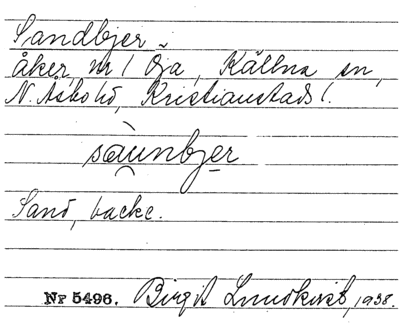 Sandbjer
åker, nr 1 Öja, Källna sn,
N. Åsbohd, Kristianstads l.
sàunbjer
Sand, backe.
Nr 5496. Birgit Lundkvist, 1938.